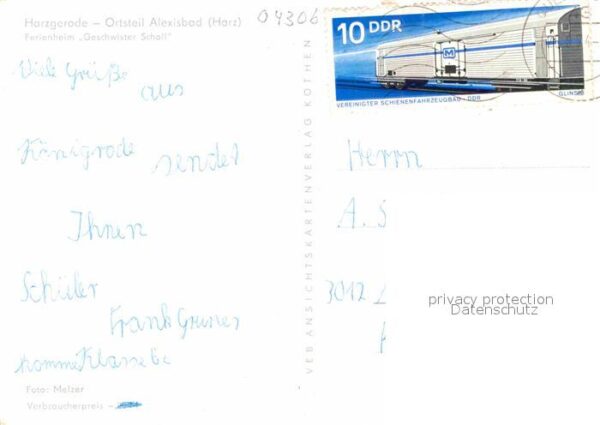 Harzgerode – Ortsteil Alexisbad (Harz)
Ferienheim „Geschwister Scholl"
04306
10 DDR
M
VEREINIGTER SCHIENENFAHRZEUGBAU · DDR
GLINSKI
Viele Grüße
aus
Königrode
sendet
Ihnen
Schüler
Frank
Klasse 6c
VEB ANSICHTSKARTENVERLAG KÖTHEN
Herrn
A. S
3012
privacy protection
Datenschutz
Foto: Melzer
Verbraucherpreis –